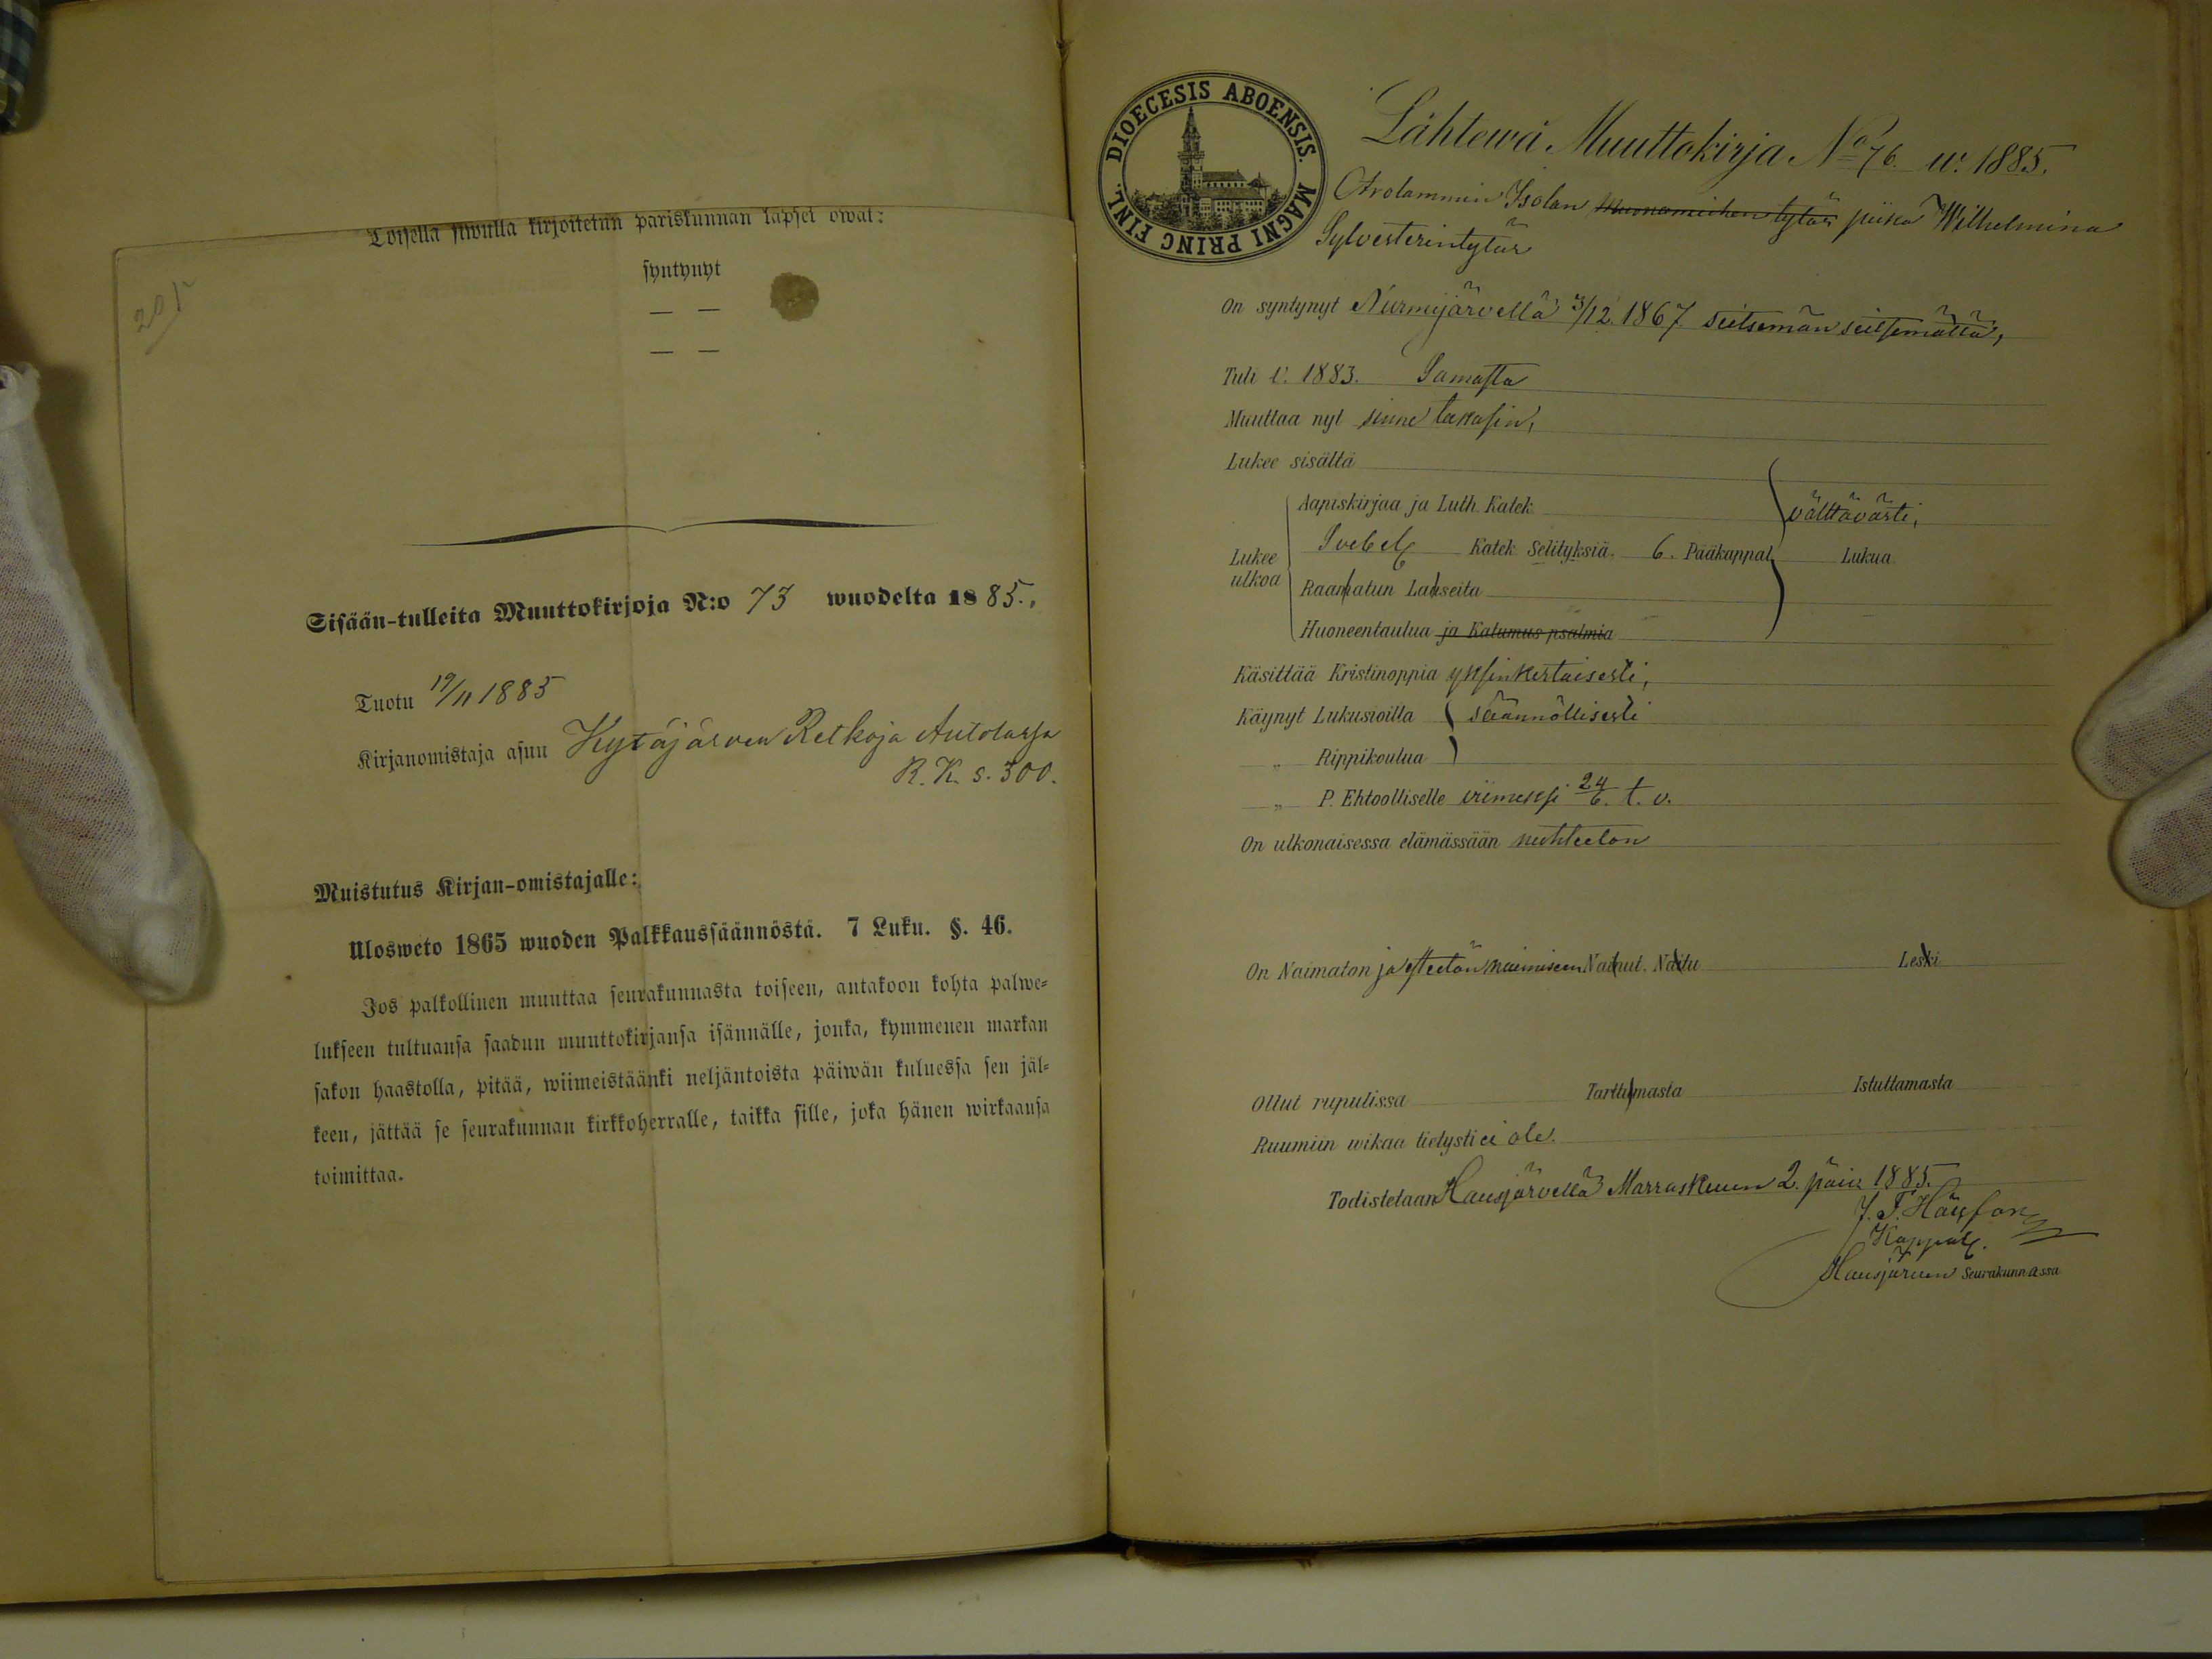 201
Toisella siwulla kirjoitetun pariskunnan lapset owat:
syntynyt
— —
— —
Sisään-tulleita Muuttokirjoja N:o 73 wuodelta 1885.,
Tuotu 19/11 1885
Kirjanomistaja asuu Kytäjärven Retkoja Autolassa
R. K. s. 300.
Muistutus Kirjan-omistajalle:
Ulosweto 1865 wuoden Palkkaussäännöstä. 7 Luku. §. 46.
Jos palkollinen muuttaa seurakunnasta toiseen, antakoon kohta palwe-
lukseen tultuansa saadun muuttokirjansa isännälle, jonka, kymmenen markan
sakon haastolla, pitää, wiimeistäänki neljäntoista päiwän kuluessa sen jäl-
keen, jättää se seurakunnan kirkkoherralle, taikka sille, joka hänen wirkaansa
toimittaa.
DIOECESIS ABOENSIS. MAGNI PRINC FINL.
Lähtewä Muuttokirja No 76. w. 1885.
Isolan tytär piika Wilhelmina
Sylvesterintytär
On syntynyt Nurmijärvellä 3/12 1867. seitsemän seitsemättä,
Tuli v. 1883. Samasta
Muuttaa nyt sinne takasin,
Lukee sisältä
Aapiskirjaa ja Luth. Katek. välttävästi,
Lukee ulkoa
Svebel Katek Selityksiä. 6. Pääkappal Lukua
Raamatun Lauseita
Huoneentaulua ja Katumus psalmia
Käsittää Kristinoppia yksinkertaisesti,
Käynyt Lukusioilla säännöllisesti
„ Rippikoulua
„ P. Ehtoolliselle viimeksi 24/6. t. v.
On ulkonaisessa elämässään nuhteeton
On Naimaton ja esteetön naimiseen Nainut. Naitu Leski
Ollut rupulissa Tarttumasta Istuttamasta
Ruumiin wikaa tietysti ei ole.
Todistetaan Hausjärvellä Marraskuun 2. päiv. 1885.
J. F.
Kappal.
Hausjärven Seurakunnassa